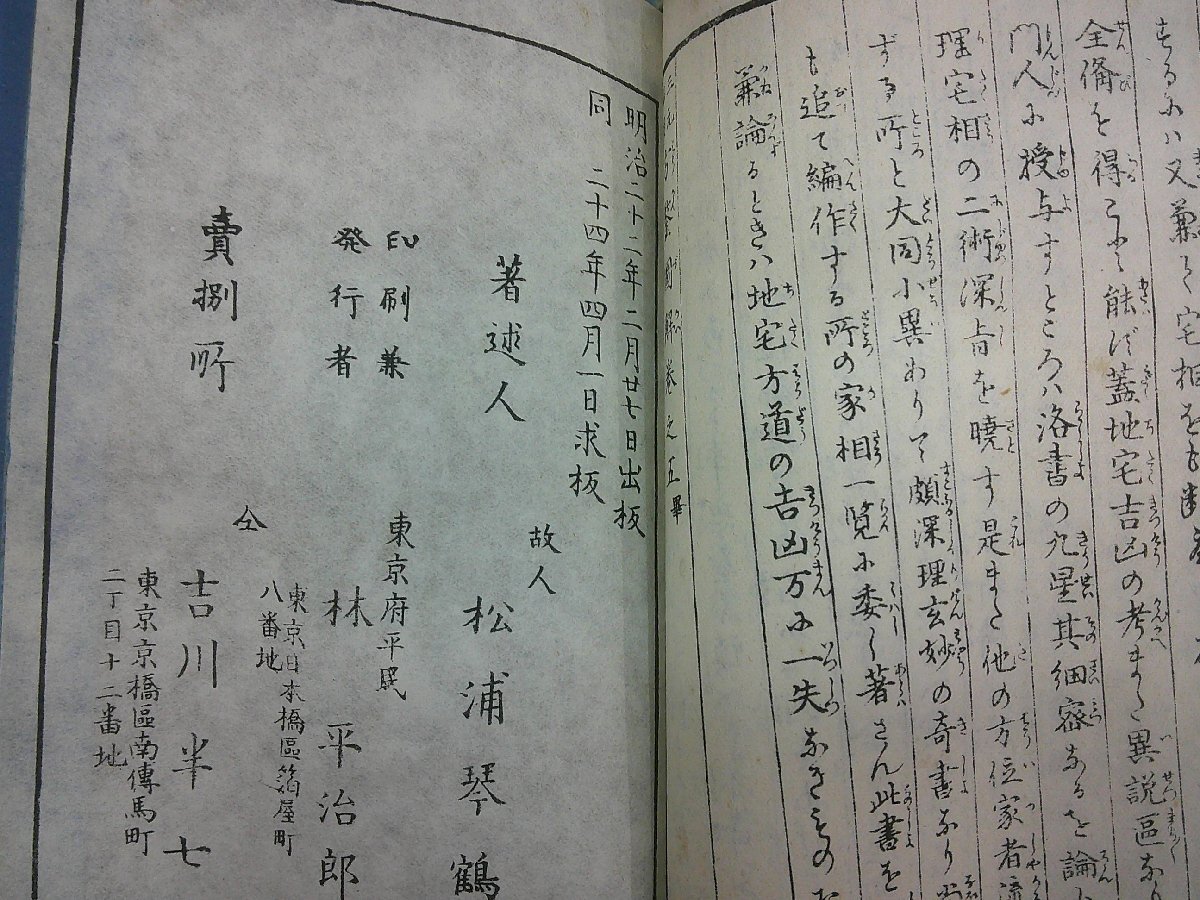 するには又兼て宅相をも
全備を得ること能はず蓋地宅吉凶の考また異説區なり
門人に授与すところハ洛書の九星其細密なるを論
理宅相の二術深旨を暁す是また他の方位家者流
ずる所と大同小異ありて頗深理玄妙の奇書なり
も追て編作する所の家相一覧に委しく著さん此書を
兼論るときハ地宅方道の吉凶万に一失なきもの
卷之五畢
明治二十二年二月廿七日出板
同 二十四年四月一日求板
著述人 故人 松浦琴鶴
印刷兼
発行者
東京府平民
林平治郎
東京日本橋區箔屋町
八番地
賣捌所 仝 吉川半七
東京京橋區南傳馬町
二丁目十二番地